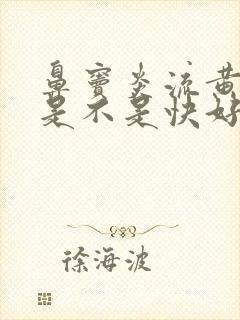 鼻窦炎流黄
是不是快好
徐海波